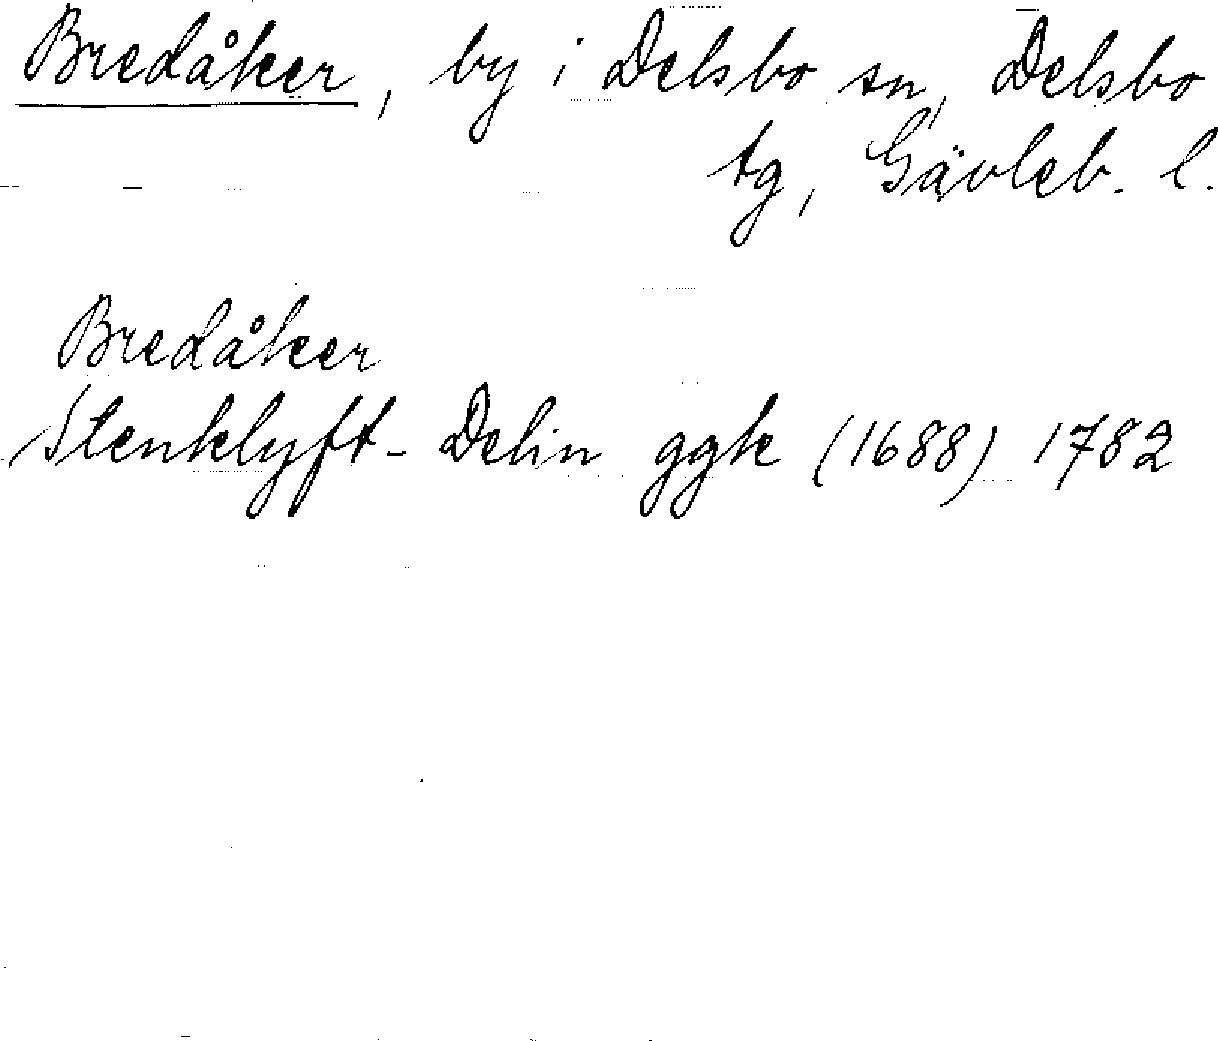 Bredåker, by i Delsbo sn, Delsbo
tg, Gävleb. l.
Bredåker
Stenklyft- Delin ggk (1688) 1782